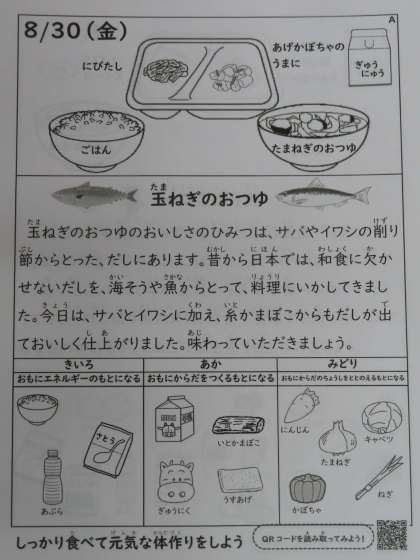 A
8/30(金)
にびたし
あげかぼちゃの
うまに
ぎゅう
にゅう
ごはん
たまねぎのおつゆ
玉ねぎのおつゆ
玉ねぎのおつゆのおいしさのひみつは、サバやイワシの削り
節からとった、だしにあります。昔から日本では、和食に欠か
せないだしを、海そうや魚からとって、料理にいかしてきまし
た。今日は、サバとイワシに加え、糸かまぼこからもだしが出
ておいしく仕上がりました。味わっていただきましょう。
きいろ
あか
みどり
おもにエネルギーのもとになる
おもにからだをつくるもとになる
おもにからだのちょうしをととのえるもとになる
さとう
いとかまぼこ
にんじん
キャベツ
たまねぎ
あぶら
ぎゅうにく
うすあげ
かぼちゃ
ねぎ
しっかり食べて元気な体作りをしよう
QRコードを読み取ってみよう!